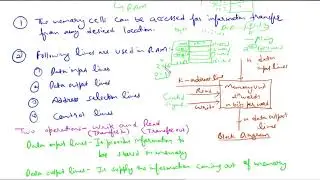 RAM
① The memory cells can be accessed for information transfer
from any desired location.
② Following lines are used in RAM:
① Data input lines
② Data output lines
③ Address selection lines
④ Control lines
Two operations - Write and Read
(Transfer in) (Transfer out)
Data input lines - It provides information to
be stored in memory
Data output lines - It supply the information coming out of memory
n data
input lines
K - address lines
Read
Write
Memory unit
n bits per word
Block Diagram